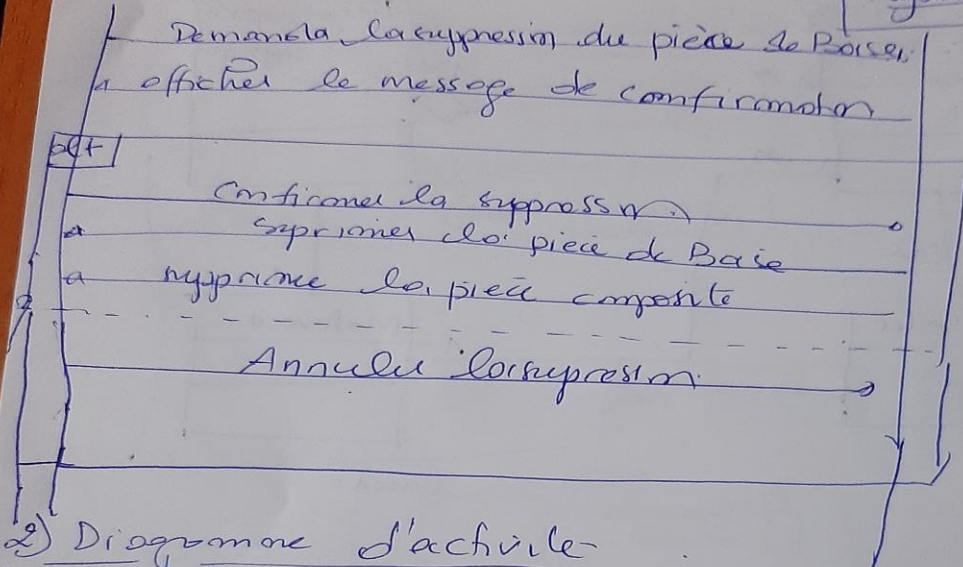 Demanda la suppression du pièce de Base
afficher le message de confirmation
Confirmer la suppression
Suprimer la pièce de Base
la pièce composite
Annuler la supression
2) Diagramme d'activite